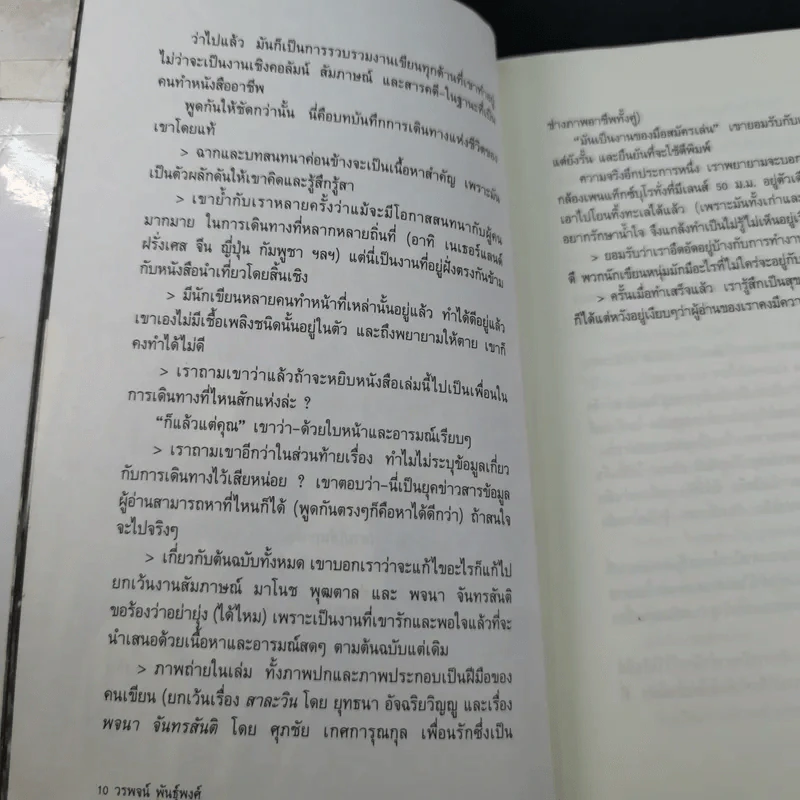 ว่าไปแล้ว มันก็เป็นการรวบรวมงานเขียนทุกด้านที่เขาทำอยู่
ไม่ว่าจะเป็นงานเชิงคอลัมน์ สัมภาษณ์ และสารคดี-ในฐานะที่เป็น
คนทำหนังสืออาชีพ
พูดกันให้ชัดกว่านั้น นี่คือบทบันทึกการเดินทางแห่งชีวิตของ
เขาโดยแท้
> ฉากและบทสนทนาค่อนข้างจะเป็นเนื้อหาสำคัญ เพราะมัน
เป็นตัวผลักดันให้เขาคิดและรู้สึกรู้สา
> เขาย้ำกับเราหลายครั้งว่าแม้จะมีโอกาสสนทนากับผู้คน
มากมาย ในการเดินทางที่หลากหลายถิ่นที่ (อาทิ เนเธอร์แลนด์
ฝรั่งเศส จีน ญี่ปุ่น กัมพูชา ฯลฯ) แต่นี่เป็นงานที่อยู่ฝั่งตรงกันข้าม
กับหนังสือนำเที่ยวโดยสิ้นเชิง
> มีนักเขียนหลายคนทำหน้าที่เหล่านั้นอยู่แล้ว ทำได้ดีอยู่แล้ว
เขาเองไม่มีเชื้อเพลิงชนิดนั้นอยู่ในตัว และถึงพยายามให้ตาย เขาก็
คงทำได้ไม่ดี
> เราถามเขาว่าแล้วถ้าจะหยิบหนังสือเล่มนี้ไปเป็นเพื่อนใน
การเดินทางที่ไหนสักแห่งล่ะ ?
“ก็แล้วแต่คุณ” เขาว่า-ด้วยใบหน้าและอารมณ์เรียบๆ
> เราถามเขาอีกว่าในส่วนท้ายเรื่อง ทำไมไม่ระบุข้อมูลเกี่ยว
กับการเดินทางไว้เสียหน่อย ? เขาตอบว่า-นี่เป็นยุคข่าวสารข้อมูล
ผู้อ่านสามารถหาที่ไหนก็ได้ (พูดกันตรงๆก็คือหาได้ดีกว่า) ถ้าสนใจ
จะไปจริงๆ
> เกี่ยวกับต้นฉบับทั้งหมด เขาบอกเราว่าจะแก้ไขอะไรก็แก้ไป
ยกเว้นงานสัมภาษณ์ มาโนช พุฒตาล และ พจนา จันทรสันติ
ขอร้องว่าอย่ายุ่ง (ได้ไหม) เพราะเป็นงานที่เขารักและพอใจแล้วที่จะ
นำเสนอด้วยเนื้อหาและอารมณ์สดๆ ตามต้นฉบับแต่เดิม
> ภาพถ่ายในเล่ม ทั้งภาพปกและภาพประกอบเป็นฝีมือของ
คนเขียน (ยกเว้นเรื่อง สาละวิน โดย ยุทธนา อัจฉริยวิญญู และเรื่อง
พจนา จันทรสันติ โดย ศุภชัย เกศการุณกุล เพื่อนรักซึ่งเป็น
10 วรพจน์ พันธุ์พงศ์
ช่างภาพอาชีพทั้งคู่)
“มันเป็นงานของมือสมัครเล่น” เขายอมรับกับ
แต่ยังรั้น และยืนยันที่จะใช้ตีพิมพ์
ความจริงอีกประการหนึ่ง เราพยายามจะบอก
กล้องเพนแท็กซ์บุโรทั่งที่มีเลนส์ 50 ม.ม. อยู่ตัวเดี
เอาไปโยนทิ้งทะเลได้แล้ว (เพราะมันทั้งเก่าและ
อยากรักษาน้ำใจ จึงแกล้งทำเป็นไม่รู้ไม่เห็นอยู่เ
> ยอมรับว่าเราอึดอัดอยู่บ้างกับการทำงาน
ดี พวกนักเขียนหนุ่มมักมีอะไรที่ไม่ใคร่จะอยู่กับ
> ครั้นเมื่อทำเสร็จแล้ว เรารู้สึกเป็นสุข
ก็ได้แต่หวังอยู่เงียบๆว่าผู้อ่านของเราคงมีความ